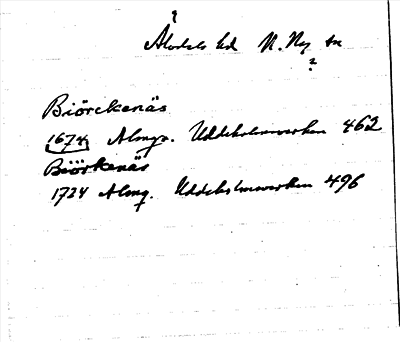 ?
Älvdals hd N. Ny sn
?
Biörckenäs
1674 Almqv. Uddeholmsverken 462
Biörkenäs
1724 Almq. Uddeholmsverken 496